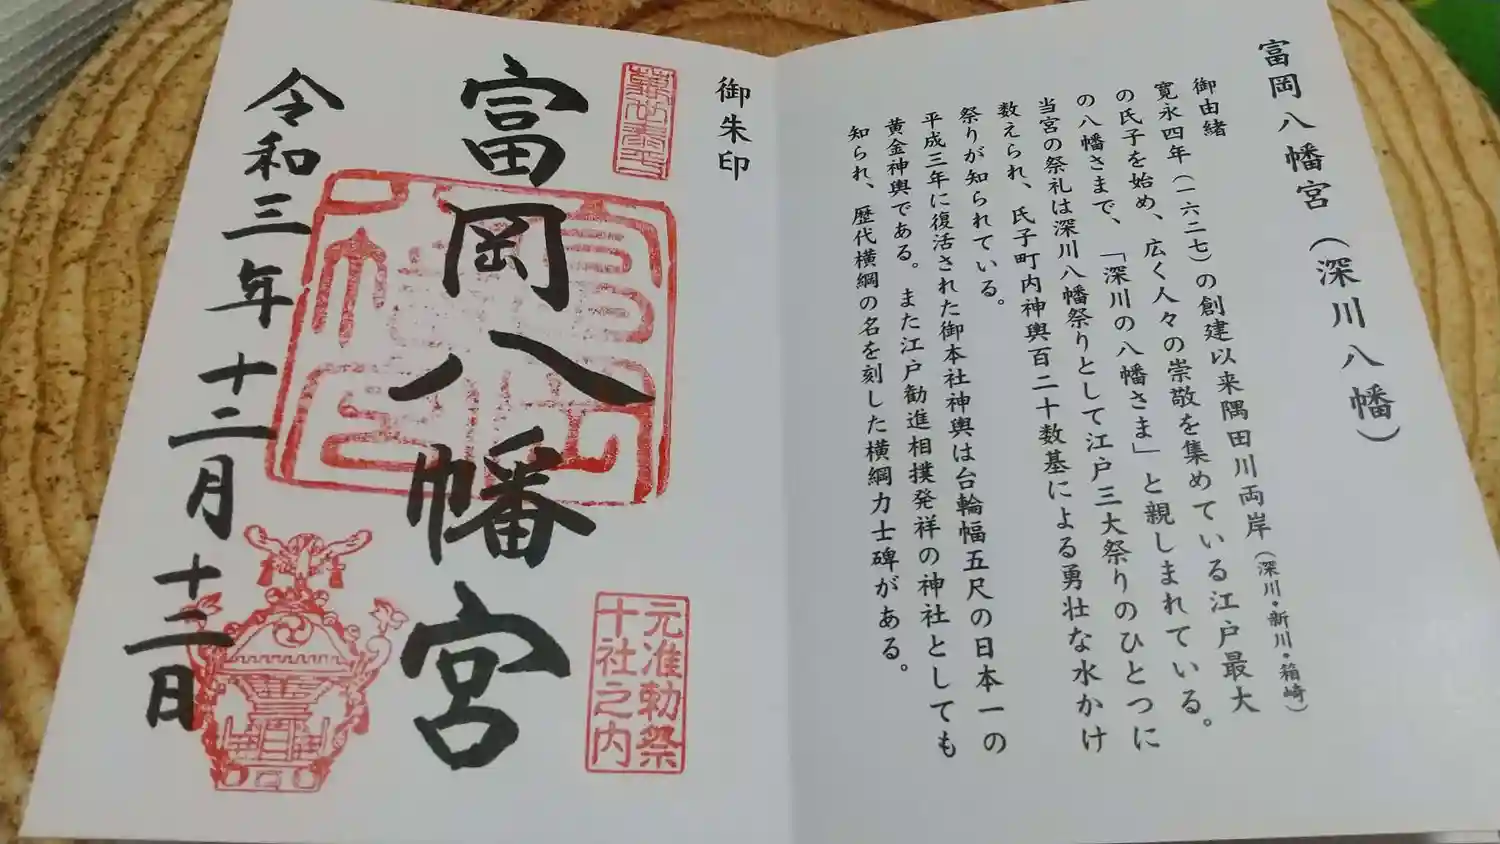 富岡八幡宮（深川八幡）
御由緒
寛永四年（一六二七）の創建以来隅田川両岸（深川・新川・箱崎）
の氏子を始め、広く人々の崇敬を集めている江戸最大
の八幡さまで、「深川の八幡さま」と親しまれている。
当宮の祭礼は深川八幡祭りとして江戸三大祭りのひとつに
数えられ、氏子町内神輿百二十数基による勇壮な水かけ
祭りが知られている。
平成三年に復活された御本社神輿は台輪幅五尺の日本一の
黄金神輿である。また江戸勧進相撲発祥の神社としても
知られ、歴代横綱の名を刻した横綱力士碑がある。
御朱印
元准勅祭
十社之内
富岡八幡宮
令和三年十二月十二日